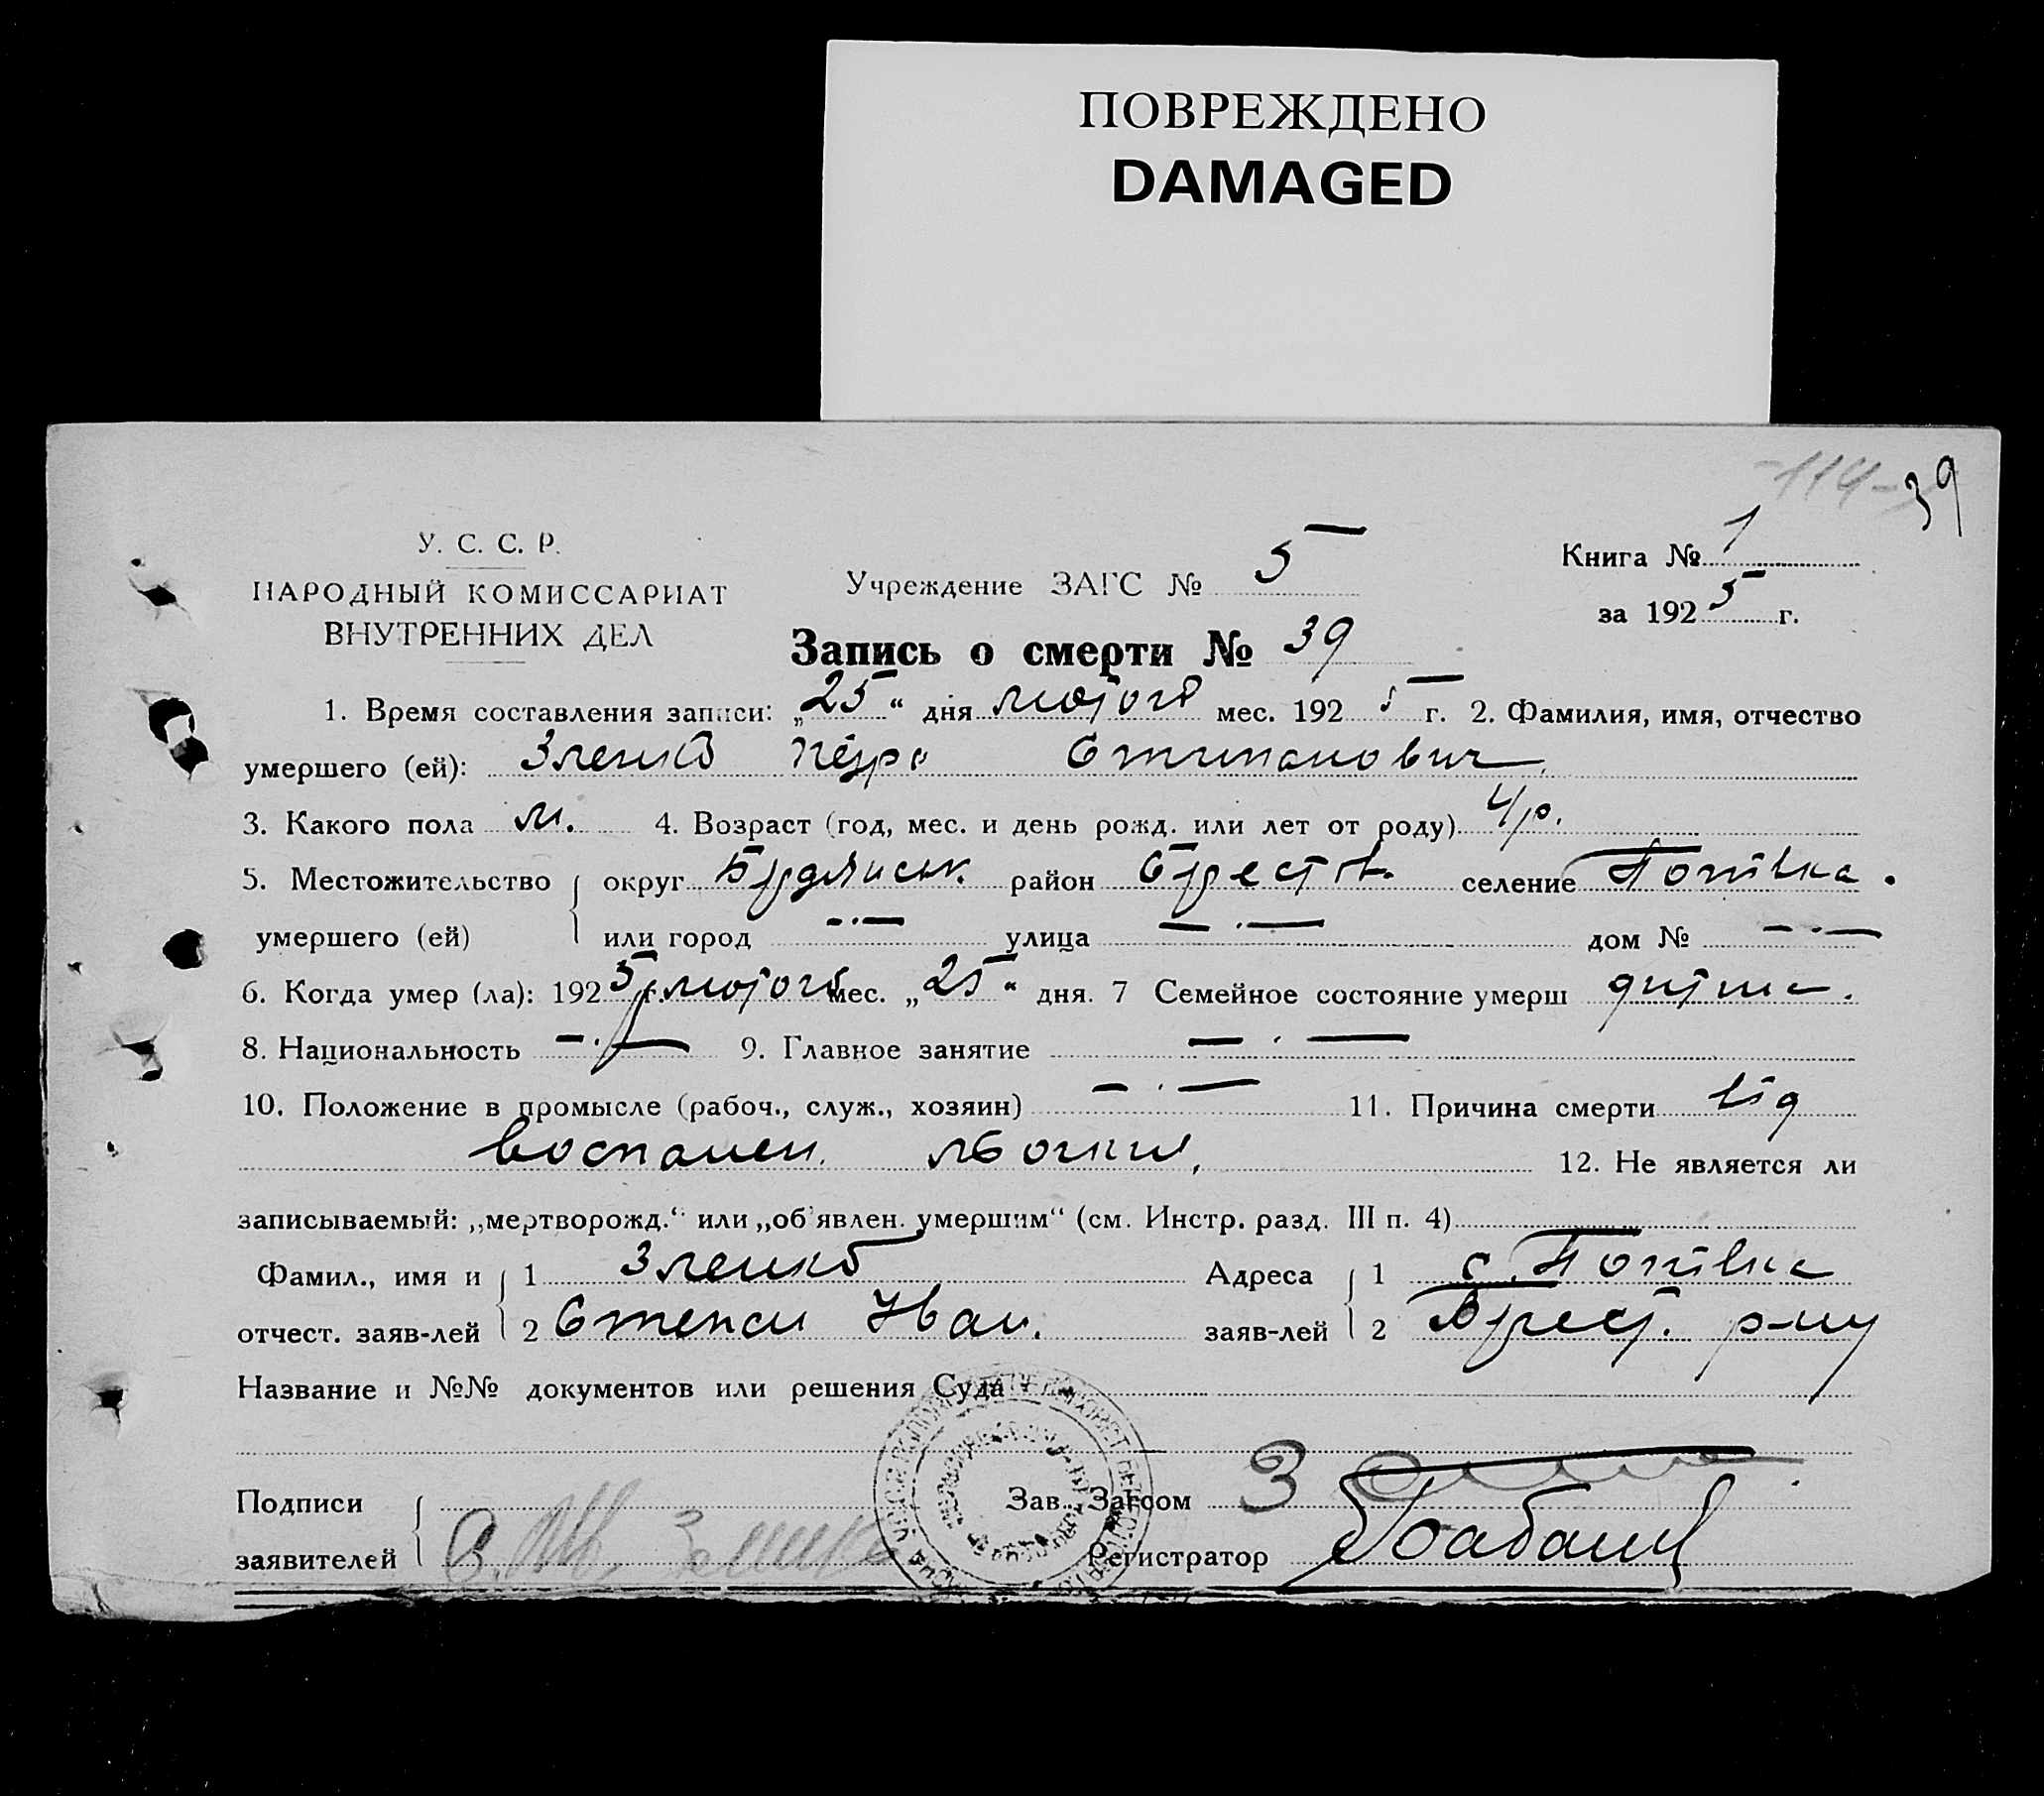 ПОВРЕЖДЕНО
DAMAGED
-114-
39
У. С. С. Р.
НАРОДНЫЙ КОМИССАРИАТ
ВНУТРЕННИХ ДЕЛ
Учреждение ЗАГС № 5
Книга № 1
за 1925 г.
Запись о смерти № 39
1. Время составления записи: „25“ дня лютого мес. 1925 г. 2. Фамилия, имя, отчество
умершего (ей): Зленко Петро Степанович
3. Какого пола м. 4. Возраст (год, мес. и день рожд. или лет от роду) 4 р.
5. Местожительство округ Бердянськ. район Берест. селение Попівка.
умершего (ей) или город — · — улица — · — дом № — · —
6. Когда умер (ла): 1925 г. лютого мес. „25“ дня. 7 Семейное состояние умерш дитина.
8. Национальность — · — 9. Главное занятие — · —
10. Положение в промысле (рабоч., служ., хозяин) — · — 11. Причина смерти від
воспален. льогких, 12. Не является ли
записываемый: „мертворожд.“ или „об'явлен. умершим“ (см. Инстр. разд. III п. 4)
Фамил., имя и 1 Зленко Адреса 1 с. Попівка
отчест. заяв-лей 2 Степан Иван. заяв-лей 2 Берест. р-ну
Название и №№ документов или решения Суда
Подписи Зав. Загсом
заявителей Регистратор